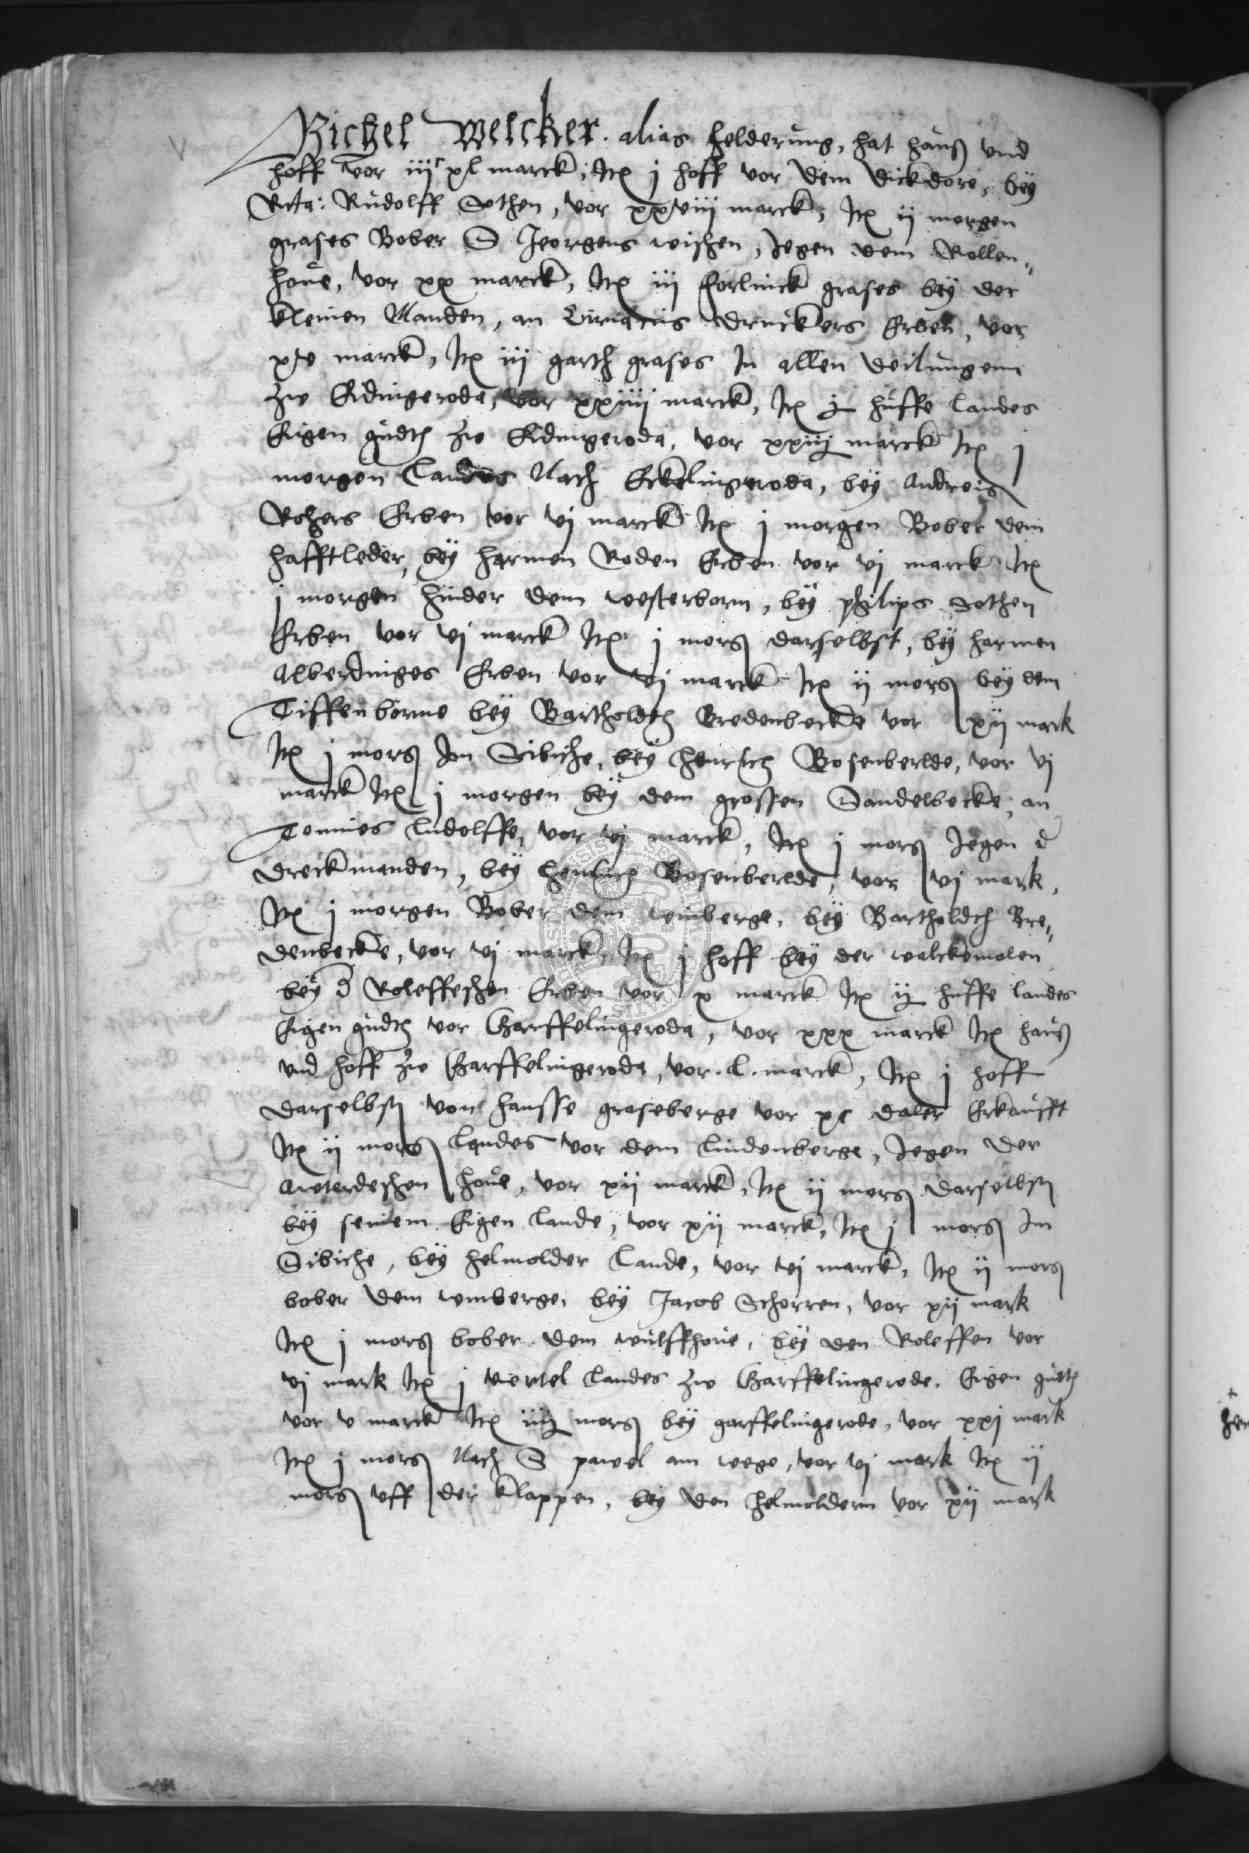 Michel Welcker. alias helderung, hat hauß und
hoff vor iiiᶜ xl marck, Itē j hoff vor dem dickdore, bÿ
Rudolff Sothen, vor xxviii marck, Itē ij morgen
grases Bober S Jeorgens wischen, Jegen dem Rollen„
houe, vor xx marck, Itē iij forlinck grases beÿ der
kleinen Manden, an Ciriacus Druckers Erben, vor
xv marck, Itē iij garth grases In allen deilungem
zw Edingeroda, vor xxiiij marck, Itē j huffe landes
Eigen gudth zw Edingeroda, vor marck Itē j
morgen Landes Nach Eckelingeroda, beÿ Andreis
Erben vor vj marck Itē j morgen Bober dem
hafftleder, beÿ harmen Roden Erben vor vj marck Itē
j morgen hinder dem westerborn, beÿ philips Sothen
Erben vor vj marck Itē j morg darselbst, beÿ harmen
Alberdinges Erben vor vj marck Itē ij morg beÿ dem
Tiffenborne beÿ Bartholdth Bredenbecke vor xij mark
Itē j morg Im Sibiche, beÿ Henrich Bosenberlde, vor vj
marck Itē j morgen beÿ dem grossen Sandelbecke, an
Tonnies Ludolffe, vor vj marck, Itē j morg Jegen d
Dreckmanden, beÿ Henrich Bosenberlde, vor vj mark,
Itē j morgen Bober dem winberge, beÿ Bartholdth Bre„
denbecke, vor vj marck, Itē j hoff beÿ der walckemolen
beÿ d Roleffeshen Erben vor x marck Itē ij huffe landes
Eigen gudth vor Garffelingeroda, vor xxx marck Itē hauß
und hoff zw Garffelingeroda, vor .L. marck, Itē j hoff
darselbst von hansse graseberge vor xc daler Erkaufft
Itē ij morg Landes vor dem Lindenberge, Jegen der
houe, vor xij marck, Itē ij morg darselbst
beÿ seinem Eigen lande, vor xij marck, Itē j morg Im
Sibiche, beÿ helmolder Lande, vor vj marck, Itē ij morg
bober dem winberge, beÿ Jacob Schorren, vor xij mark
Itē j morg bober dem wulffhoue, beÿ den Roleffen vor
vj mark Itē j viertel Landes zw Garffelingerode. Eigen gudth
vor v marck Itē morg beÿ garffelingerode, vor xxj mark
Itē j morg Nach S pawel am wege, vor vj mark Itē ij
morg uff der klappen, beÿ den Helmoldern vor xij mark